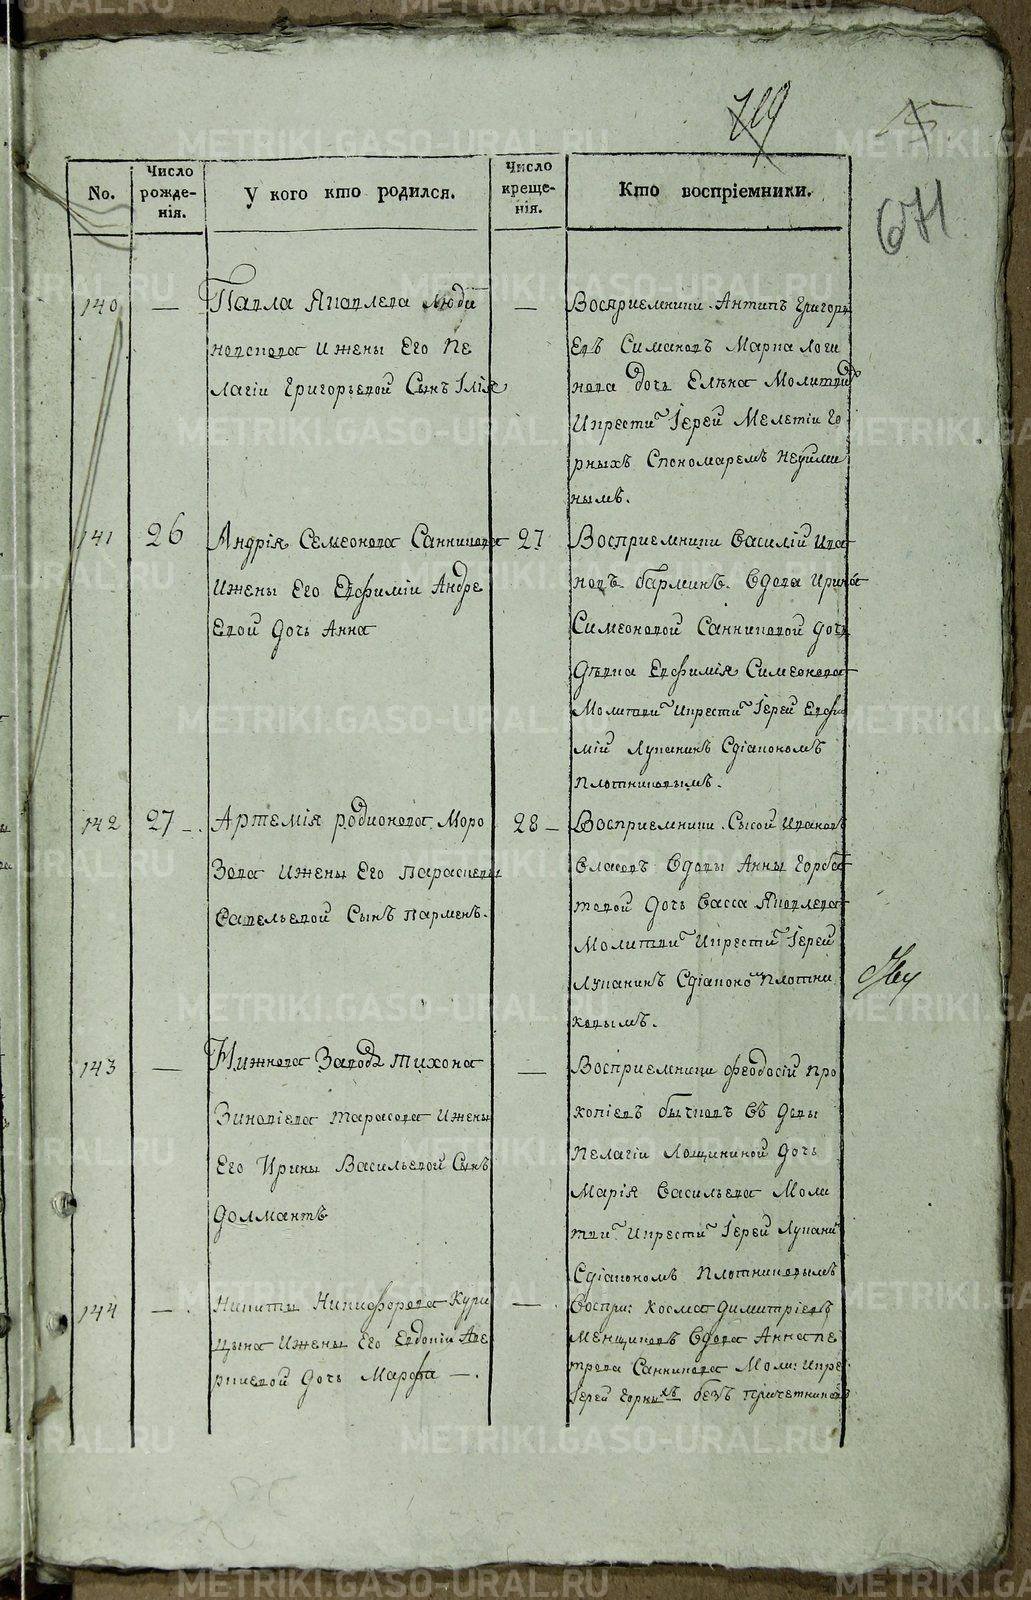 719
15
671
No.
Число рожде-нія.
У кого кто родился.
Число креще-нія.
Кто воспріемники.
140
—
Павла Яковлева Люди
новскова и жены Его Пе
лагіи Григорьевой Сынъ Илія
—
Восприемники Антипъ Григорь
Евъ Симановъ Марка Логи
нова дочь Елѣна Молитви
и крести Іерей Мелетій Го
рныхъ Спономаремъ Неуйми
нымъ.
141
26
Андрія Семеонова Санникова
и жены Его Евфиміи Андре
Евой Дочь Анна
27
Восприемники Василій Ива
новъ барминъ. Вдова Ирина
Симеоновой Санниковой дочь
Дѣвка Евфимія Симеонова
Молитви и крести Іерей Евфи
мій Лукани͏нъ Сдіакономъ
Плотниковымъ.
142
27 —
Артемія родионова Моро
Зова и жены Его параскевы
Савельевой Сынъ парменъ.
28 —
Восприемники Сысой Ивановъ
Власовъ Вдовы Анны Горба
товой Дочь Васса Яковлева
Молитви и крести Іерей
Луканинъ Сдіаконо Плотни
ковымъ.
143
—
Нижнева Завода тихона
Зиновіева тарасова и жены
Его Ирины Васильевой Сынъ
Долмантъ
—
Восприемники феодосій про
копіевъ бычковъ В довы
Пелагіи Лощининой Дочь
Марія Васильева Моли
тви и крести Іерей Лукани
Сдіакономъ Плотниковымъ
144
— .
Никиты Никифорова Кури
цына и жены Его Евдокіи Аве
ркиевой Дочь Марфа — .
— .
Воспри: Косма димитріевъ
Менщиковъ Вдова Анна пе
трова Санникова Моли: и кре
Іерей Горныхъ безъ причетниковъ
METRIKI.GASO-URAL.RU